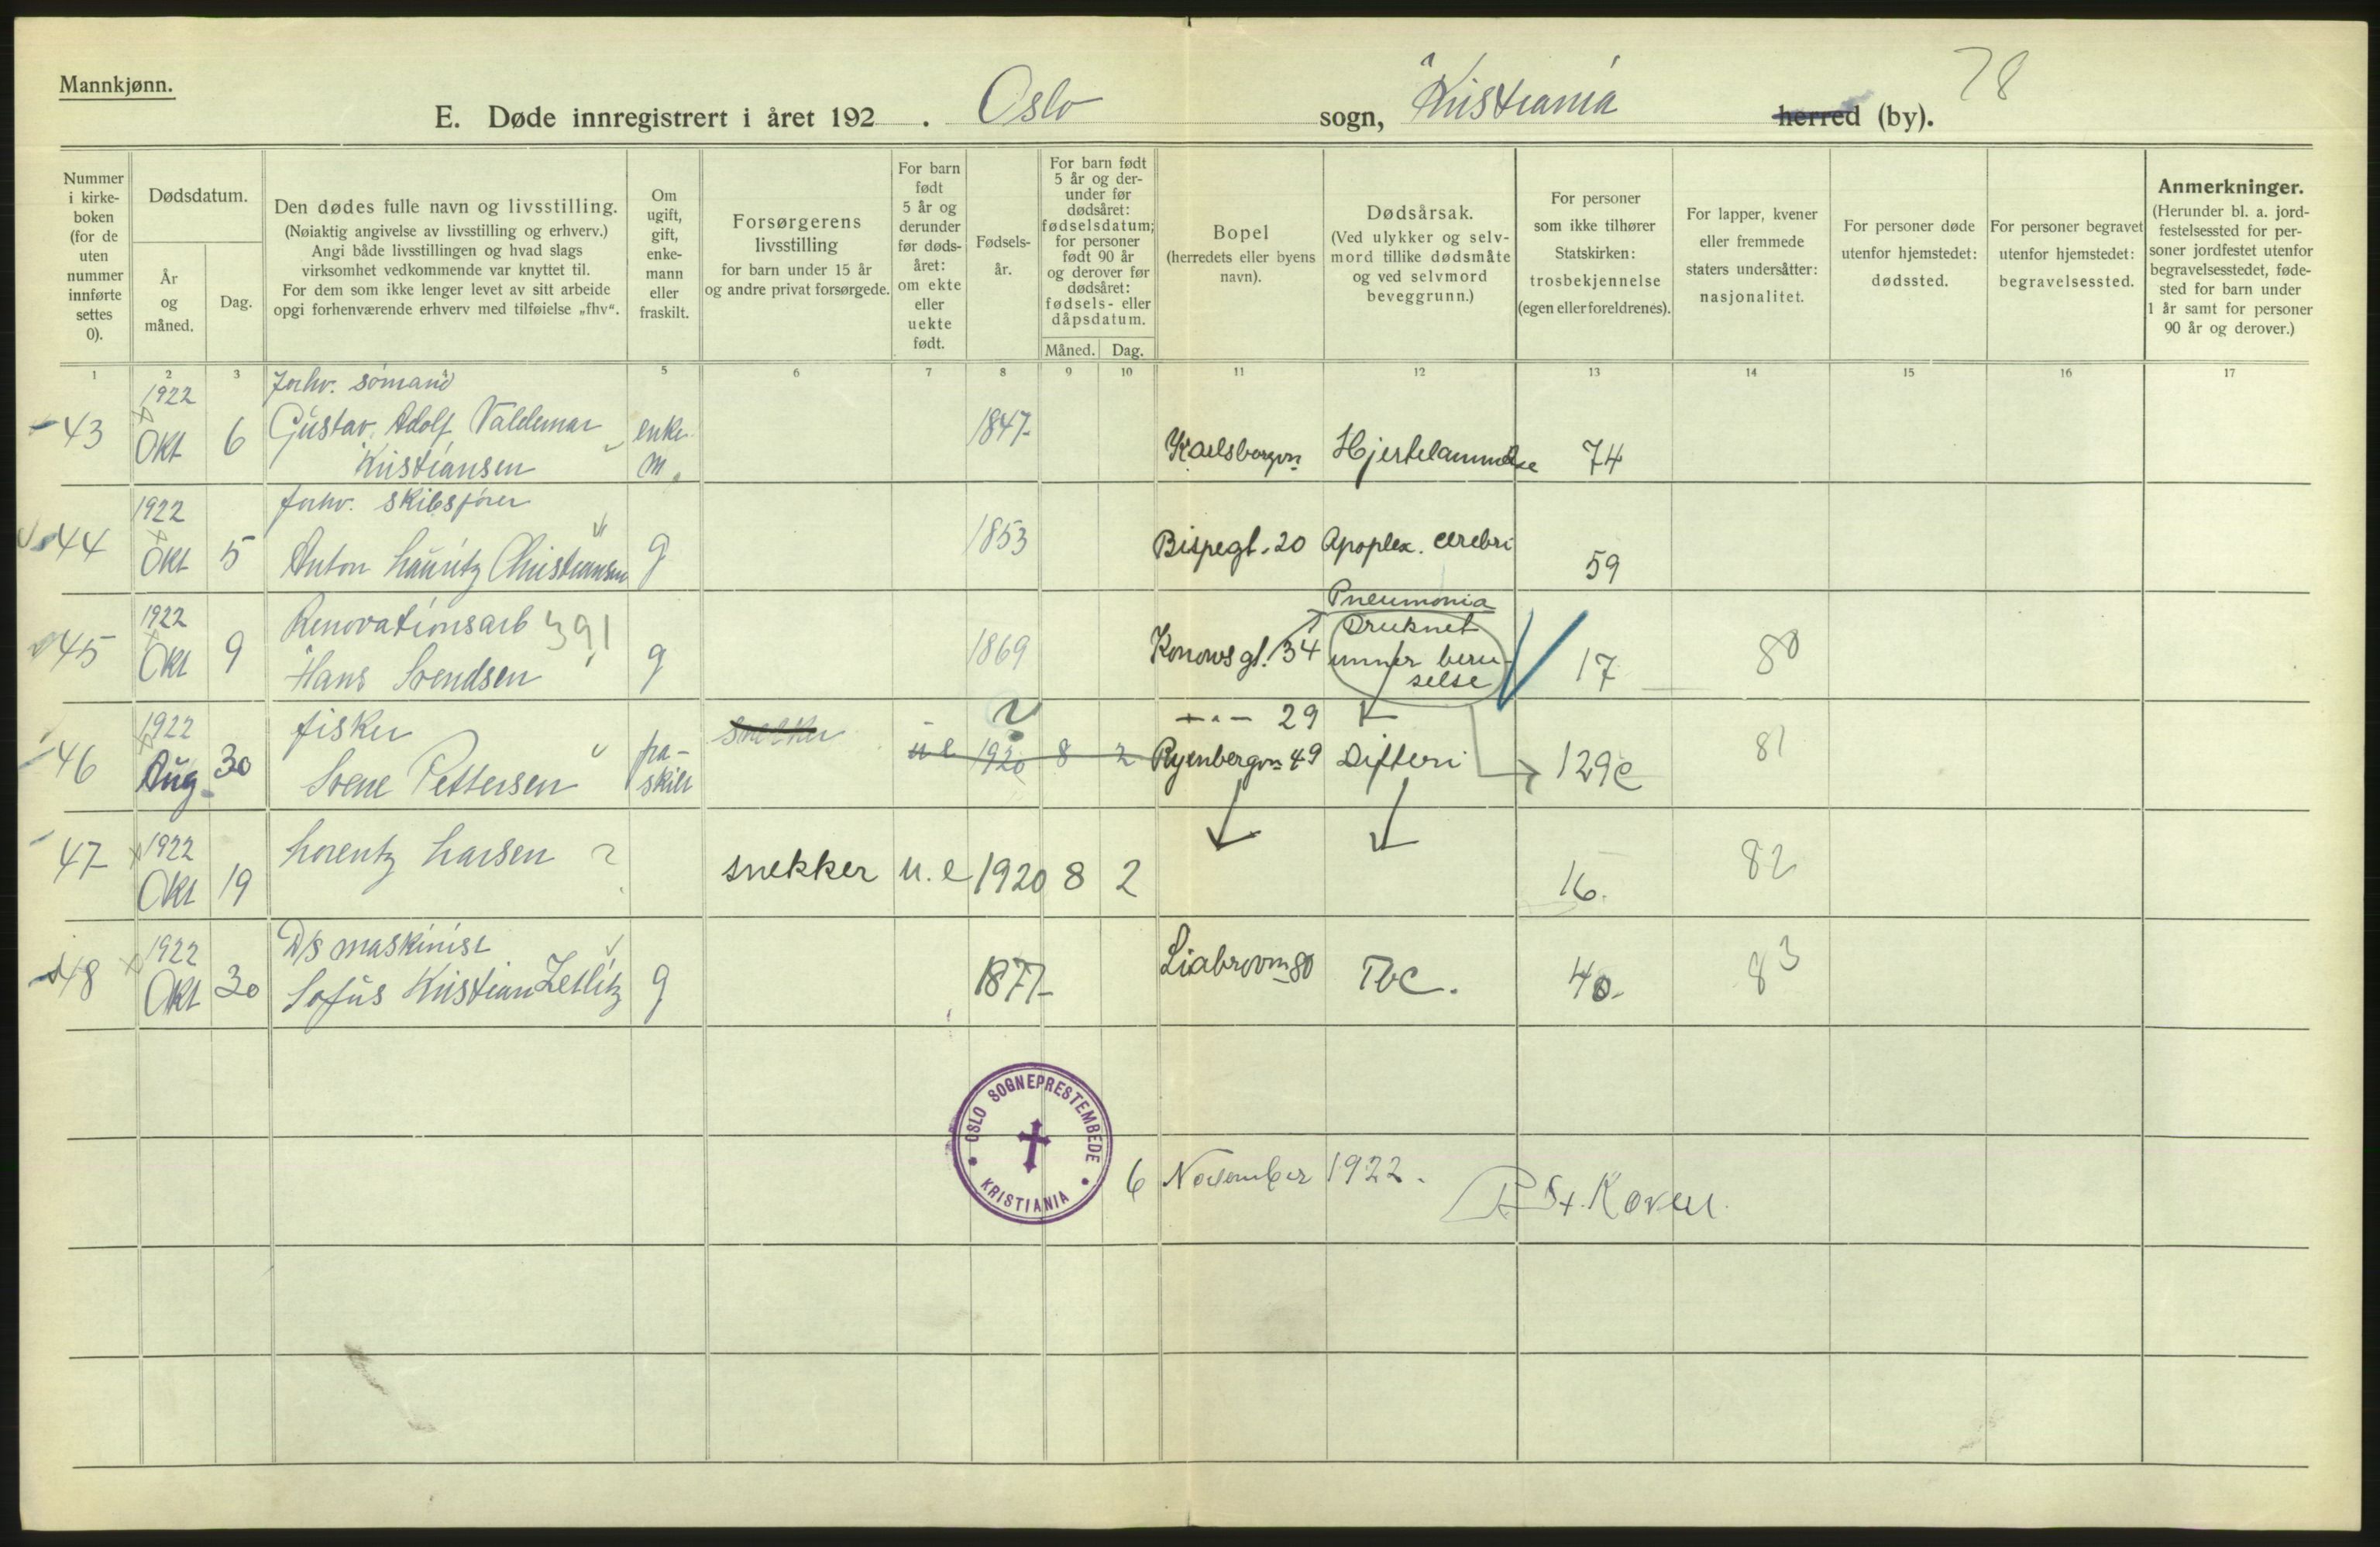 Mannkjønn.
78
E. Døde innregistrert i året 192 . Oslo sogn, Kristiania herred (by).
Nummer i kirke-boken (for de uten nummer innførte settes 0).
Dødsdatum.
År og måned.
Dag.
Den dødes fulle navn og livsstilling.
(Nøiaktig angivelse av livsstilling og erhverv.)
Angi både livsstillingen og hvad slags
virksomhet vedkommende var knyttet til.
For dem som ikke lenger levet av sitt arbeide
opgi forhenværende erhverv med tilføielse „fhv“.
Om ugift, gift, enke-mann eller fraskilt.
Forsørgerens livsstilling
for barn under 15 år
og andre privat forsørgede.
For barn født 5 år og derunder før døds-året: om ekte eller uekte født.
Fødsels-år.
For barn født 5 år og der-under før dødsåret: fødselsdatum; for personer født 90 år og derover før dødsåret: fødsels- eller dåpsdatum.
Måned. Dag.
Bopel
(herredets eller byens navn).
Dødsårsak.
(Ved ulykker og selv-mord tillike dødsmåte og ved selvmord beveggrunn.)
For personer som ikke tilhører Statskirken: trosbekjennelse (egen eller foreldrenes).
For lapper, kvener eller fremmede staters undersåtter: nasjonalitet.
For personer døde utenfor hjemstedet: dødssted.
For personer begravet utenfor hjemstedet: begravelsessted.
Anmerkninger.
(Herunder bl. a. jord-festelsessted for per-soner jordfestet utenfor begravelsesstedet, føde-sted for barn under 1 år samt for personer 90 år og derover.)
1 2 3 5 6 7 8 9 10 11 12 13 14 15 16 17
1922 forhv. sømand
43 Okt 6 Gustav Adolf Valdemar enke 1847
Kristiansen m. Karlsborgvn Hjertelammelse 74
1922 forhv. skibsfører
44 Okt 5 Anton Lauritz Christiansen g 1853 Bispegt. 20 Apoplex. cerebri 59
Pneumonia
1922 Renovationsarb 391 Druknet
45 Okt 9 Hans Svendsen g 1869 Konows gt. 34 unner beru-selse 17 80
1922 fisker snekker ? -"- 29
46 Aug. 30 Svene Pettersen fra-skilt u e 1920 8 2 Ryenbergvn 49 Difteri 129c 81
1922
47 Okt 19 Lorentz Larsen ? snekker u. e 1920 8 2 16. 82
1922 D/s maskinist
48 Okt 30 Sofus Kristian Zetlitz g 1877 Liabrovn 80 Tbc. 40. 83
OSLO SOGNEPRESTEMBEDE
KRISTIANIA
6 November 1922.